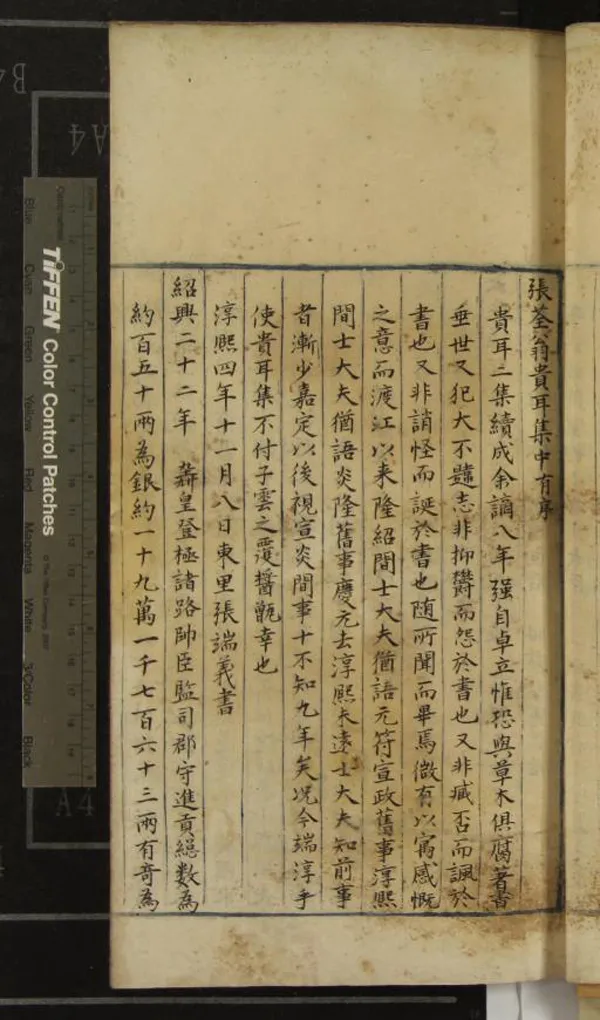 張荃翁貴耳集中有序
貴耳二集續成余謫八年强自卓立惟恐與草木俱腐著書
垂世又犯大不韙志非抑欝而怨於書也又非臧否而諷於
書也又非誚怪而誕於書也随所聞而畢焉微有以寓感慨
之意而渡江以来隆紹間士大夫猶語元符宣政舊事淳熙
間士大夫猶語炎隆舊事慶元去淳熙未遠士大夫知前事
者漸少嘉定以後視宣炎間事十不知九年矣况今端淳乎
使貴耳集不付子雲之覆醬甑幸也
淳熙四年十一月八日東里張端義書
紹興二十二年 壽皇登極諸路帥臣監司郡守進貢緫数為
約百五十兩為銀約一十九萬一千七百六十三兩有奇為
TIFFEN Color Control Patches
© The Tiffen Company, 2007
Blue
Cyan
Green
Yellow
Red
Magenta
White
3/Color
Black
A4
A4
B4